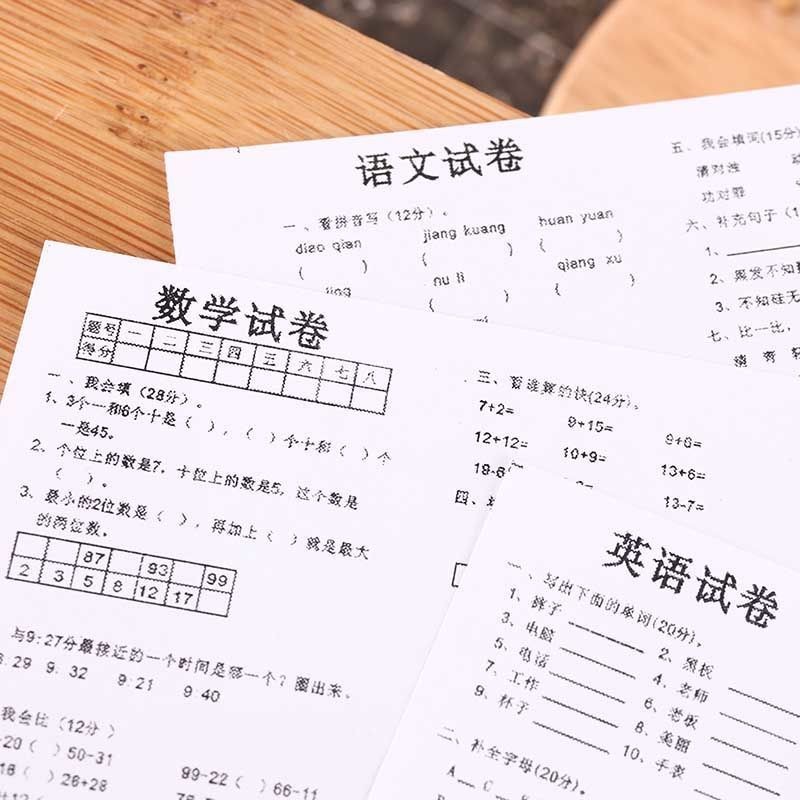 语文试卷
一、看拼音写(12分)。
diao qian jiang kuang huan yuan
( ) ( ) ( )
jing nu li qiang xu
( ) ( )
五、我会填词(15分)
清对浊
功对罪
六、补充句子(1
1、
2、果发不知
3、不知硅无
七、比一比,
数学试卷
题号 一 二 三 四 五 六 七 八
得分
一、我会填(28分)。
1、3个一和6个十是( ),( )个十和( )个
一是45。
2、个位上的数是7,十位上的数是5,这个数是
( )。
3、最小的2位数是( ),再加上( )就是最大
的两位数。
87 93 99
2 3 5 8 12 17
与9:27分最接近的一个时间是哪一个?圈出来。
8:29 9:32 9:21 9:40
我会比(12分)
20( )50-31
99-22( )66-11
16( )26+28
三、看谁算的快(24分)。
7+2= 9+15= 9+6=
12+12= 10+9= 13+6=
13-7=
四、
英语试卷
一、写出下面的单词(20分)。
1、裤子 2、黑板
3、电脑 4、老师
5、电话 6、老板
7、工作 8、美丽
9、杯子 10、手表
二、补全字母(20分)。
A C